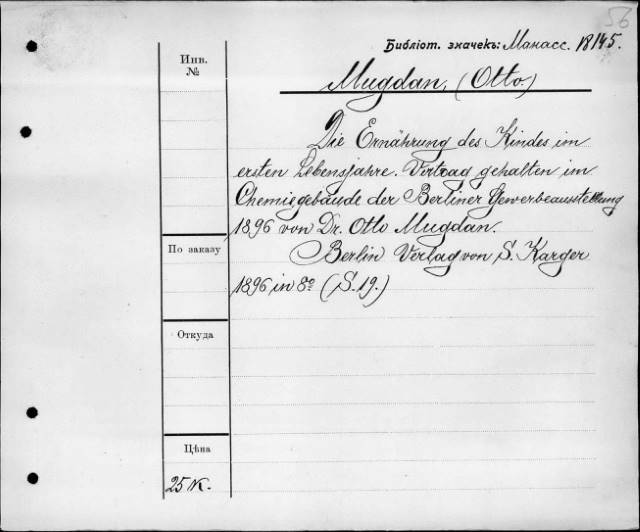 56
Библіот. значекъ: Манасс. 18145.
Инв.
№
Mugdan, (Otto.)
Die Ernährung des Kindes im
ersten Lebensjahre. Vortrag gehalten im
Chemiegebäude der Berliner Gewerbeausstellung
1896 von Dr. Otto Mugdan.
По заказу
Berlin Verlag von S. Karger
1896 in 8º (S. 19.)
Откуда
Цѣна
25 к.